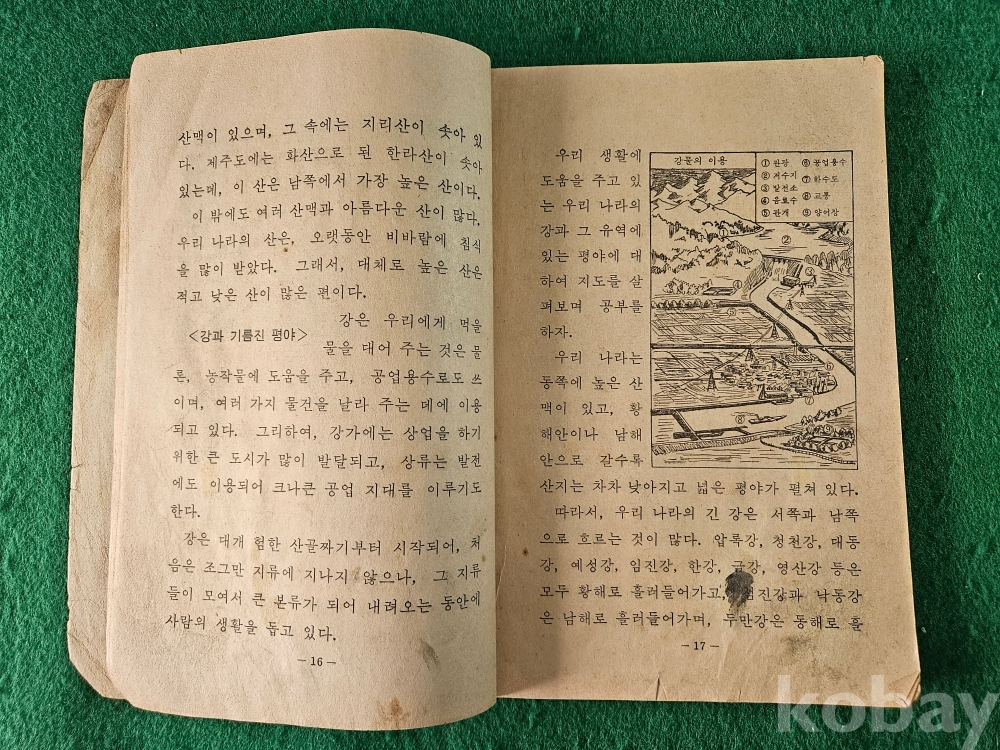 산맥이 있으며, 그 속에는 지리산이 솟아 있
다. 제주도에는 화산으로 된 한라산이 솟아
있는데, 이 산은 남쪽에서 가장 높은 산이다.
이 밖에도 여러 산맥과 아름다운 산이 많다.
우리 나라의 산은, 오랫동안 비바람에 침식
을 많이 받았다. 그래서, 대체로 높은 산은
적고 낮은 산이 많은 편이다.
<강과 기름진 평야>
강은 우리에게 먹을
물을 대어 주는 것은 물
론, 농작물에 도움을 주고, 공업용수로도 쓰
이며, 여러 가지 물건을 날라 주는 데에 이용
되고 있다. 그리하여, 강가에는 상업을 하기
위한 큰 도시가 많이 발달되고, 상류는 발전
에도 이용되어 크나큰 공업 지대를 이루기도
한다.
강은 대개 험한 산골짜기부터 시작되어, 처
음은 조그만 지류에 지나지 않으나, 그 지류
들이 모여서 큰 본류가 되어 내려오는 동안에
사람의 생활을 돕고 있다.
— 16 —
우리 생활에
도움을 주고 있
는 우리 나라의
강과 그 유역에
있는 평야에 대
하여 지도를 살
펴보며 공부를
하자.
우리 나라는
동쪽에 높은 산
맥이 있고, 황
해안이나 남해
안으로 갈수록
산지는 차차 낮아지고 넓은 평야가 펼쳐 있다.
따라서, 우리 나라의 긴 강은 서쪽과 남쪽
으로 흐르는 것이 많다. 압록강, 청천강, 대동
강, 예성강, 임진강, 한강, 금강, 영산강 등은
모두 황해로 흘러들어가고, 진강과 낙동강
은 남해로 흘러들어가며, 두만강은 동해로 흘
— 17 —
강물의 이용
① 관광
② 저수지
③ 발전소
④ 음료수
⑤ 관개
⑥ 공업용수
⑦ 하수도
⑧ 교통
⑨ 양어장
①
②
③
④
⑤
⑥
⑦
⑧
⑨
kobay